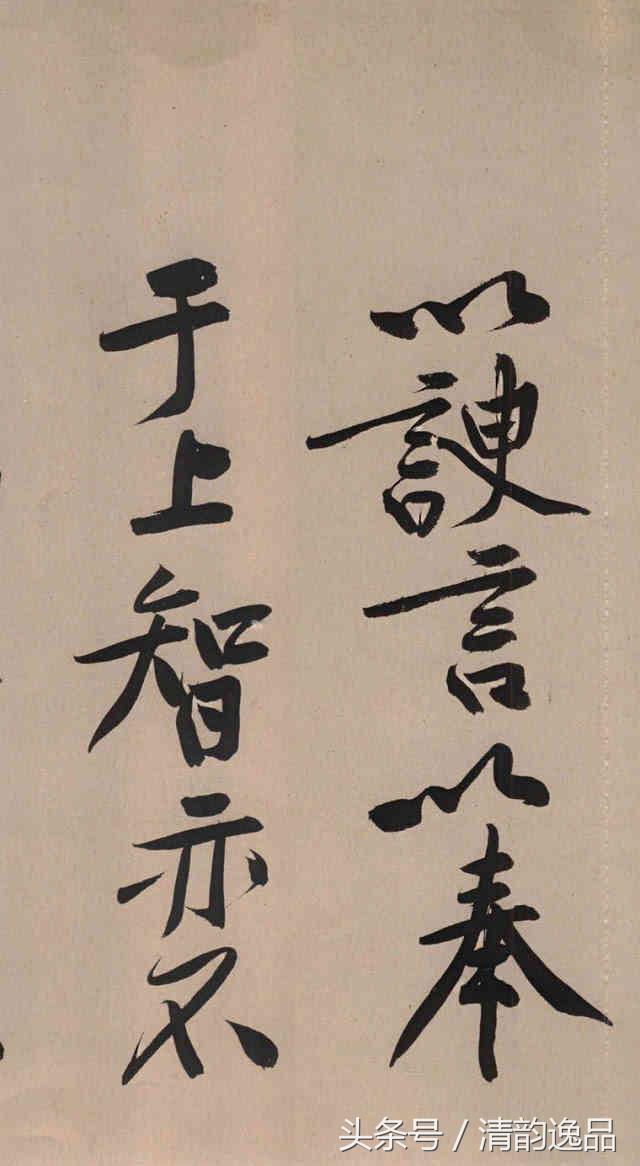 以諛言以奉
于上智亦不
头条号 / 清韵逸品